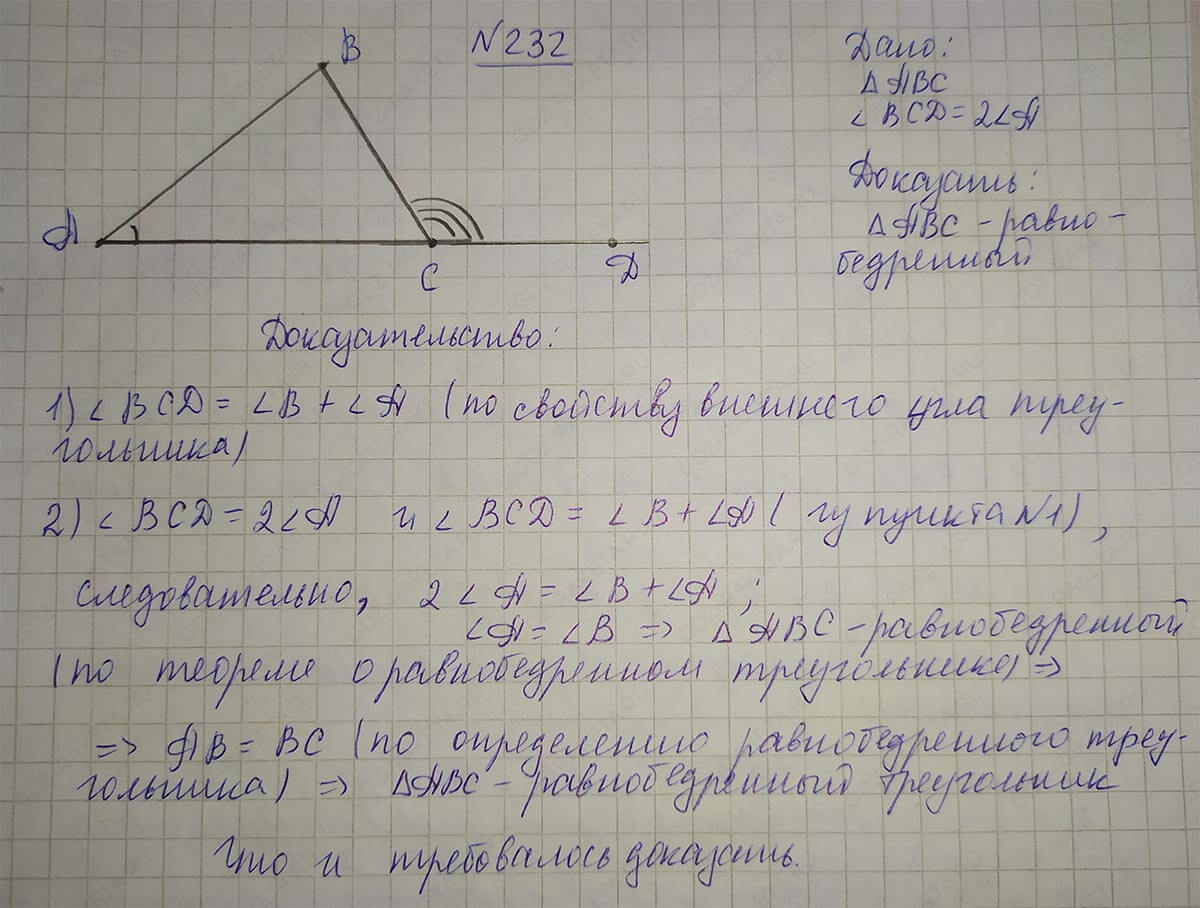 №232
B
A
C
D
Дано:
△ABC
∠BCD=2∠A
Доказать:
△ABC - равно-
бедренный
Доказательство:
1) ∠BCD = ∠B + ∠A (по свойству внешнего угла треу-
гольника)
2) ∠BCD = 2∠A и ∠BCD = ∠B + ∠A ( из пункта №1) ,
следовательно, 2∠A = ∠B + ∠A ;
∠A = ∠B => △ABC - равнобедренный
(по теореме о равнобедренном треугольнике) =>
=> AB = BC (по определению равнобедренного треу-
гольника) => △ABC - равнобедренный треугольник
Что и требовалось доказать.